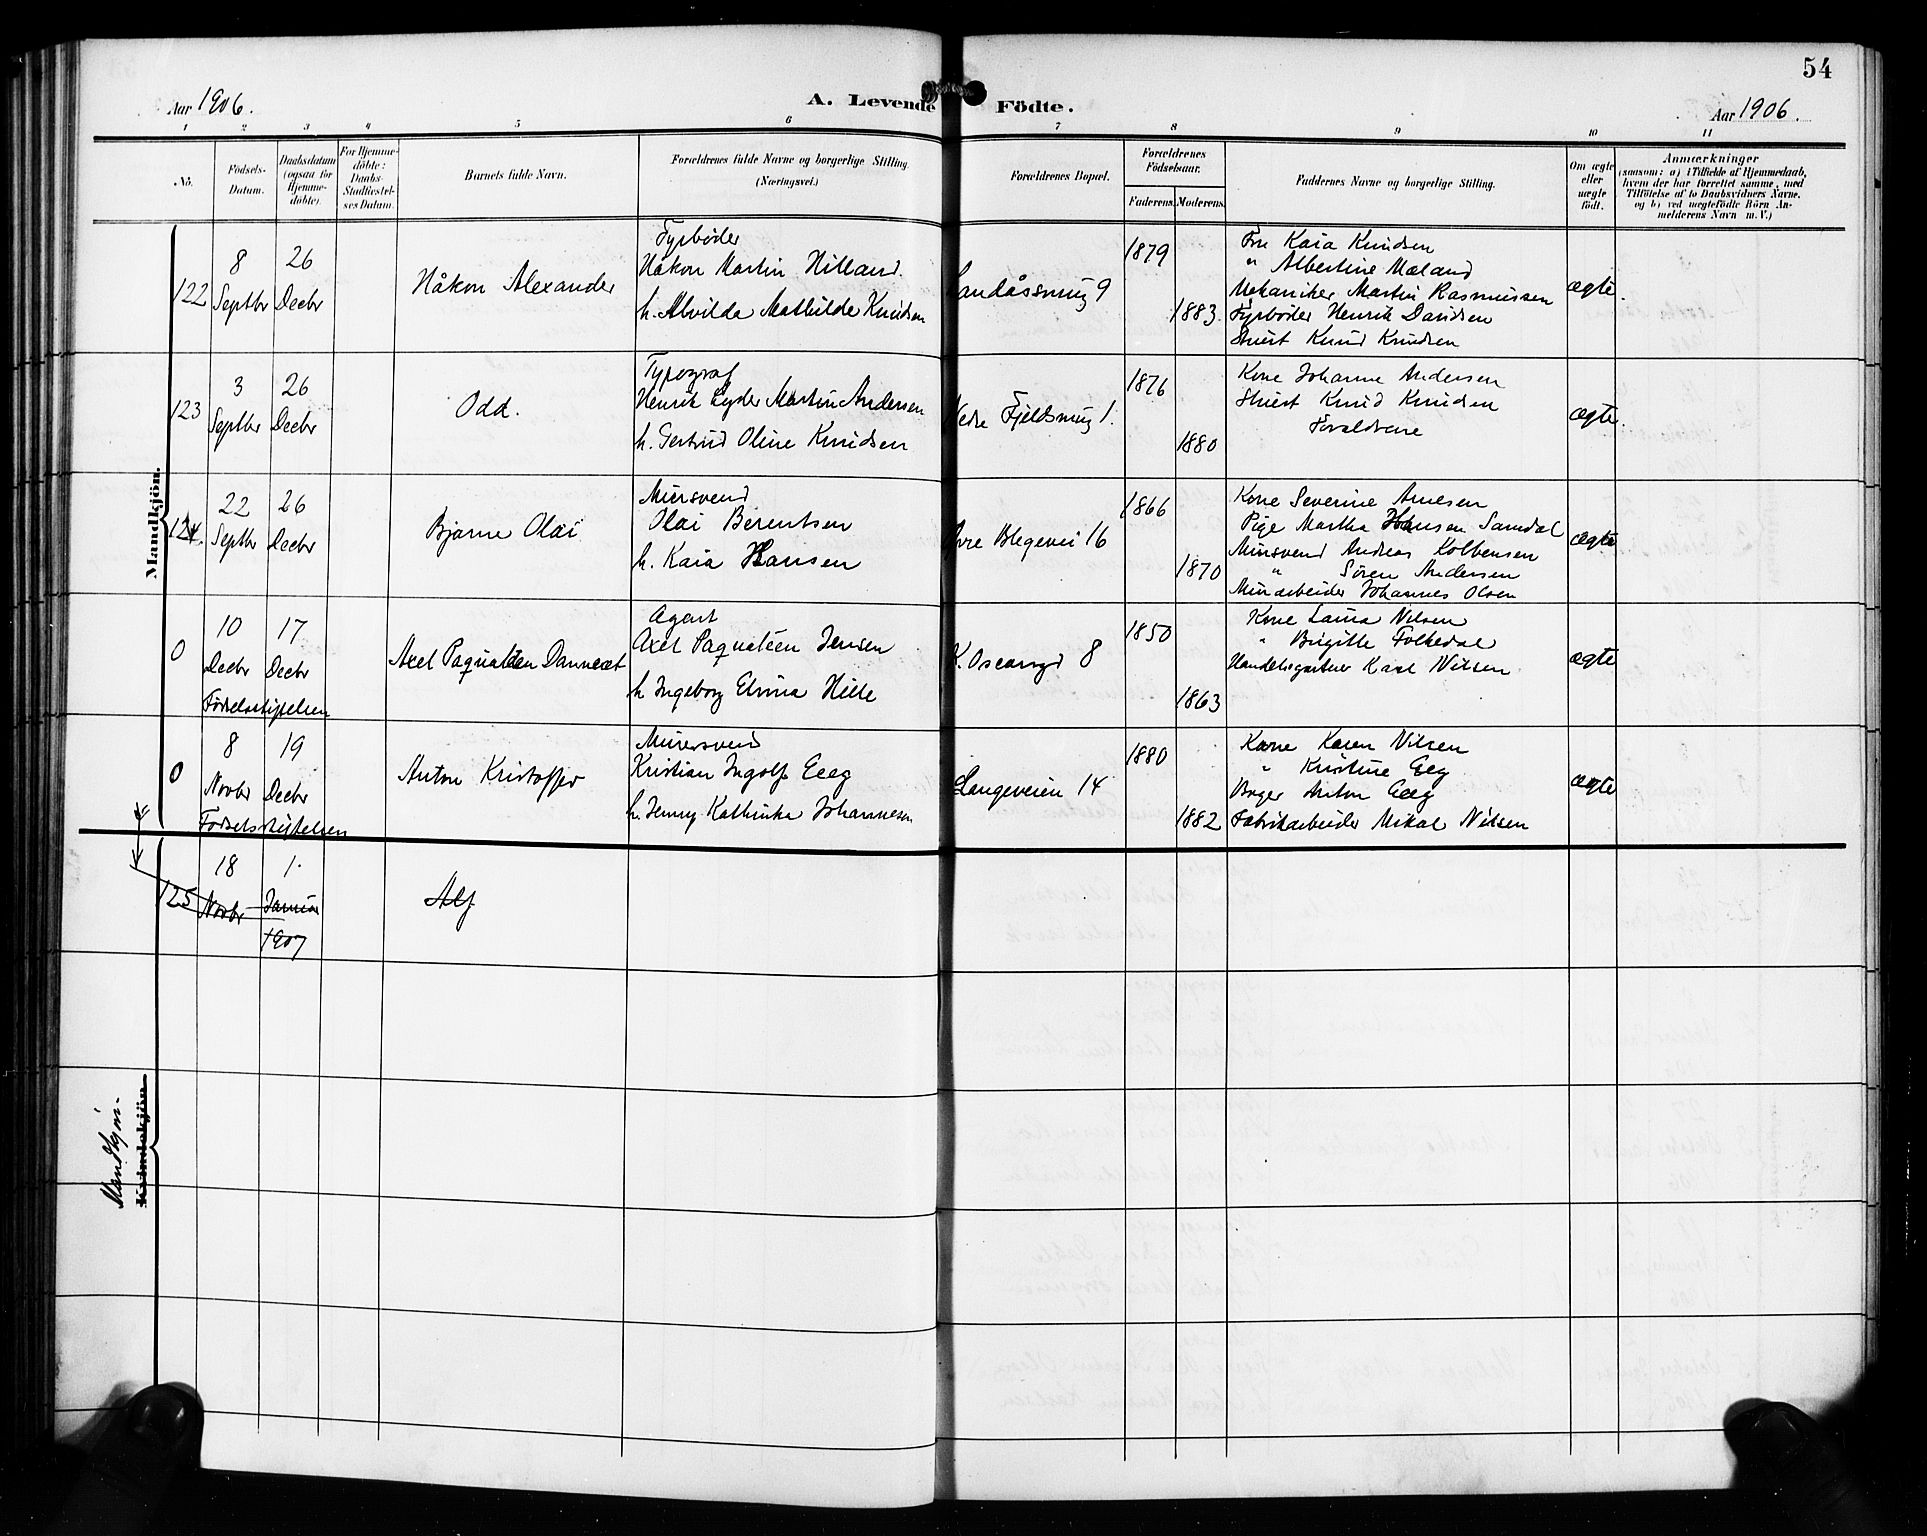 54
Aar 1906.
A. Levende Födte.
Aar 1906.
1 2 3 4 5 6 7 8 9 10 11
No.
Födsels-Datum.
Daabsdatum (ogsaa for Hjemmedöbte).
For Hjemmedöbte: Daabs-Stadfæstelses Datum.
Barnets fulde Navn.
Forældrenes fulde Navne og borgerlige Stilling. (Næringsvei.)
Forældrenes Bopæl.
Forældrenes Födselsaar.
Faderens. Moderens.
Faddernes Navne og borgerlige Stilling.
Om ægte eller uægte födt.
Anmærkninger
(saasom: a) i Tilfælde af Hjemmedaab,
hvem der har forrettet samme, med
Tilföielse af to Daabsvidners Navne.
og b) ved uægtefödte Börn An-
melderens Navn m.V.)
Mandkjön.
122
8 Septbr
26 Decbr
Håkon Alexander
Fyrbøder
Håkon Martin Hilland.
h. Alvilda Mathilde Knudsen
Landåssmug 9
1879
1883.
Fru Kaia Knudsen
" Albertine Mæland
Mekaniker Martin Rasmussen
Fyrbøder Henrik Davidsen
Stuert Knud Knudsen
ægte.
123
3 Septbr
26 Decbr
Odd.
Typograf
Henrik Lyder Martin Andersen
h. Gertrud Oline Knudsen
Nedre Fjeldsmug 1.
1876
1880
Kone Johanne Andersen
Stuert Knud Knudsen
Forældrene
ægte.
124.
22 Septbr
26 Decbr
Bjarne Olai
Mursvend
Olai Berentsen
h. Kaia Hansen
Øvre Blegevei 16
1866
1870
Kone Severine Arnesen
Pige Martha Hansen Samdal
Mursvend Andreas Kolbensen
" Søren Andersen
Murarbeider Johannes Olsen
ægte
0
10 Decbr
17 Decbr
Fødselsstiftelsen
Agent
Axel Paqualeen Jensen
h Ingeborg Elvina Hille
K. Oscarsgd 8
1850
1863
Kone Laura Nilsen
" Birgitte Folkedal
Handelsgartner Karl Nilsen
ægte
0
8 Novbr
19 Decbr
Fødselsstiftelsen
Anton Kristoffer
Murersvend
Kristian Ingolf Eeg
h. Jenny Kathinka Johannesen
Langeveien 14
1880
1882
Kone Karen Nilsen
" Kristine Eeg
Bager Anton Eeg
Fabrikarbeider Mikal Nilsen
ægte
125
18 Novbr
1. Januar 1907
Alf
Mandkjøn.
Kvindekjön.